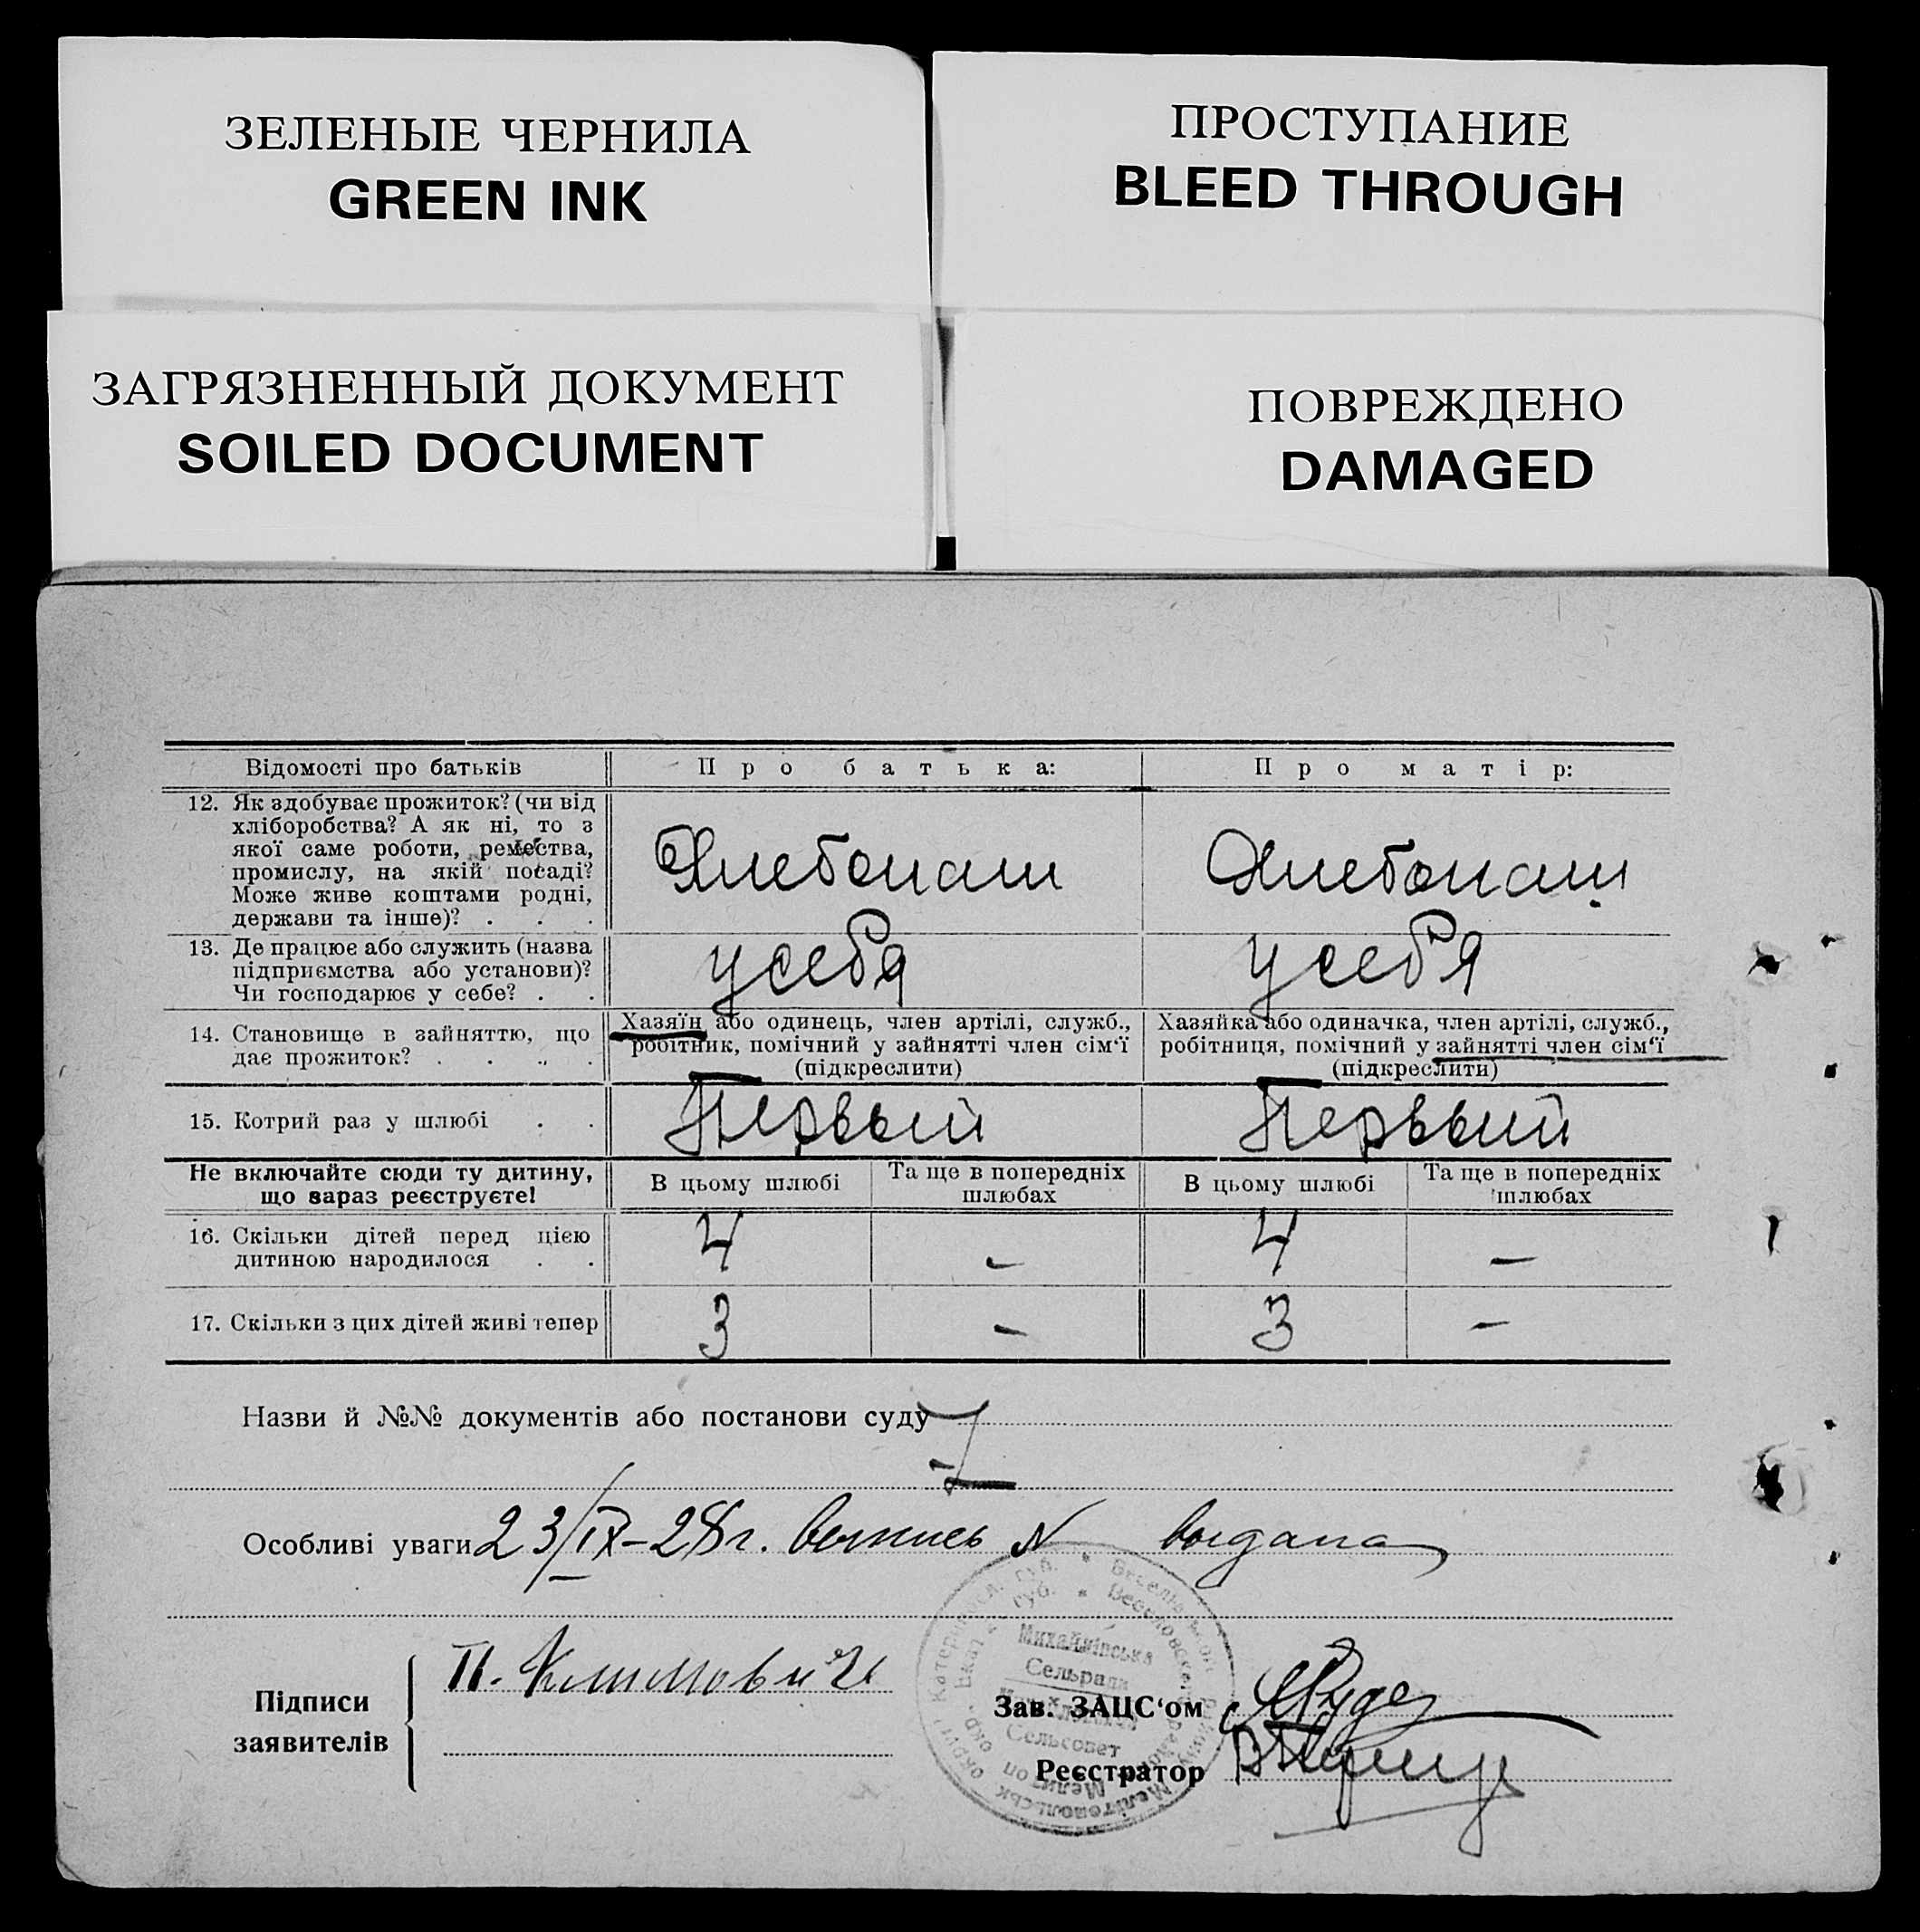 ЗЕЛЕНЫЕ ЧЕРНИЛА
GREEN INK
ПРОСТУПАНИЕ
BLEED THROUGH
ЗАГРЯЗНЕННЫЙ ДОКУМЕНТ
SOILED DOCUMENT
ПОВРЕЖДЕНО
DAMAGED
Відомості про батьків
Про батька:
Про матір:
12. Як здобуває прожиток? (чи від
хліборобства? А як ні, то з
якої саме роботи, ремества,
промислу, на якій посаді?
Може живе коштами родні,
держави та інше)? . . .
Хлебопаш
Хлебопаш
13. Де працює або служить (назва
підприємства або установи)?
Чи господарює у себе? . .
у себя
у себя
14. Становище в зайняттю, що
дає прожиток? . . . .
Хазяїн або одинець, член артілі, служб.,
робітник, помічний у зайнятті член сім‘ї
(підкреслити)
Хазяйка або одиначка, член артілі, служб.,
робітниця, помічний у зайнятті член сім‘ї
(підкреслити)
15. Котрий раз у шлюбі . .
Первый
Первый
Не включайте сюди ту дитину,
що зараз реєструєте!
В цьому шлюбі
Та ще в попередніх
шлюбах
В цьому шлюбі
Та ще в попередніх
шлюбах
16. Скільки дітей перед цією
дитиною народилося . .
4 - 4 -
17. Скільки з цих дітей живі тепер
3 - 3 -
Назви й №№ документів або постанови суду
Особливі уваги 23/IX-28г. выпись N выдана
Підписи
заявителів
П. Климович
Михайлівська
Сельрада
Сельсовет
Зав. ЗАЦС‘ом
Реєстратор